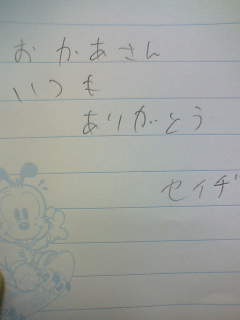 おかあさん
いつも
ありがとう
セイヂ